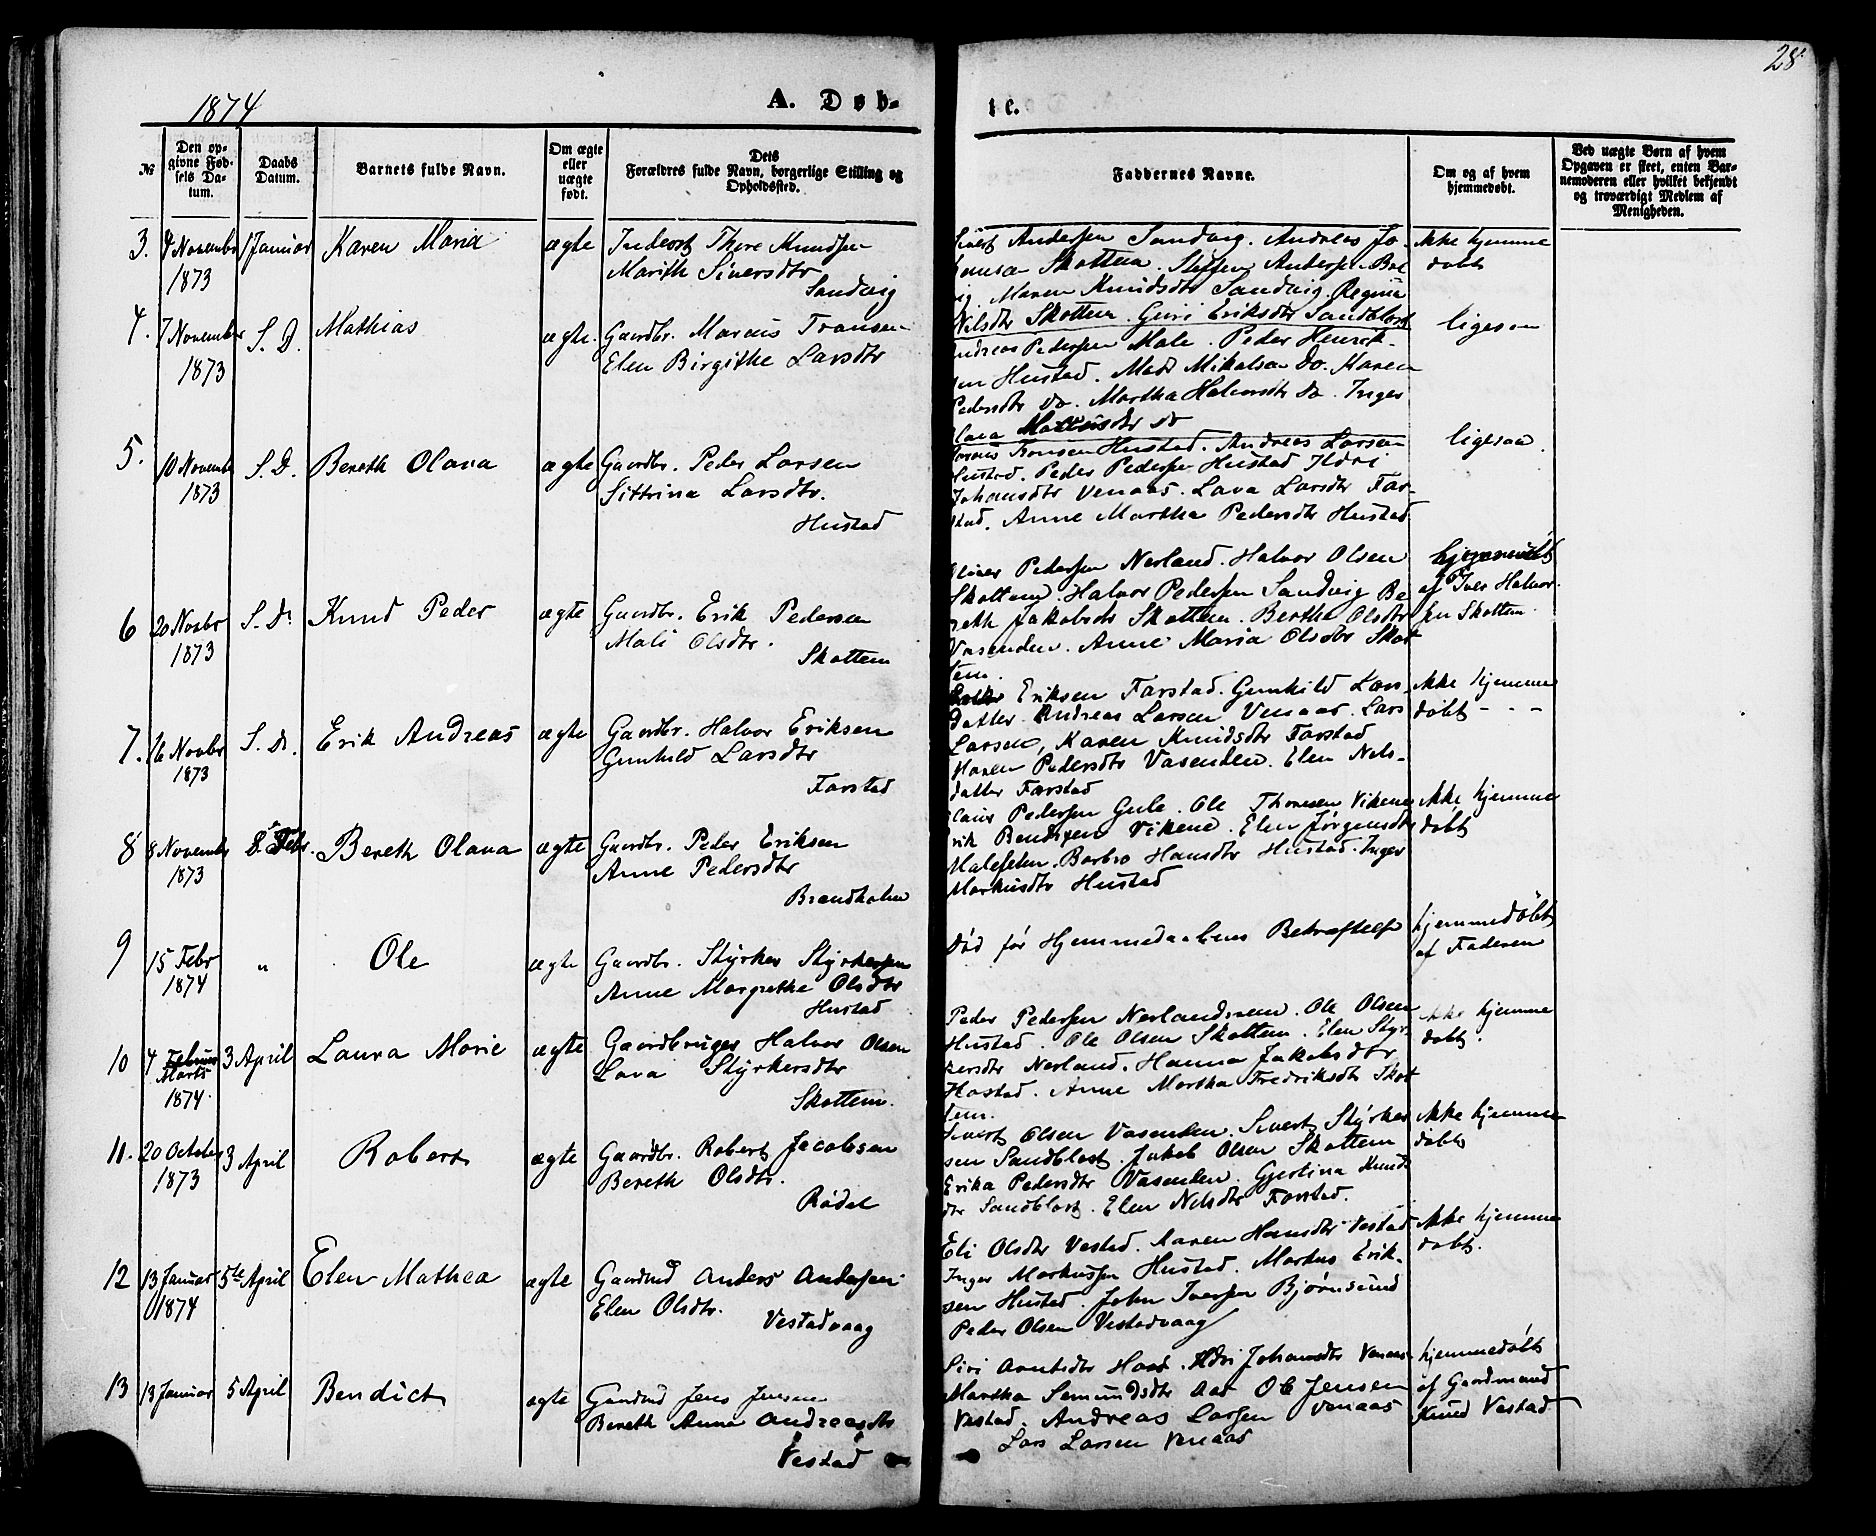 28
1874
A. Døb-
te.
№
Den op-
givne Fød-
sels Da-
tum.
Daabs
Datum.
Barnets fulde Navn.
Om ægte
eller
uægte
født.
Dets
Forældres fulde Navn, borgerlige Stilling og
Opholdssted.
Faddernes Navne.
Om og af hvem
hjemmedøbt.
Ved uægte Børn af hvem
Opgaven er skeet, enten Bar-
nemoderen eller hvilket bekjendt
og troværdigt Medlem af
Menigheden.
3. 4 Novembr 1873
1 Januar
Karen Maria
ægte
Inderst Thore Knudsen
Marith Siversdtr
Sandvig
Sivert Andersen Sandvig. Andreas Jo-
hansen Skottem. Steffen Andersen
Maren Knudsdtr Sandvig. Regine
Nilsdtr Skottem. Guri Eriksdtr Sandblost
Ikke hjemme
døbt
4. 7 November 1873
S. D.
Mathias
ægte.
Gaardbr. Marcus Fransen
Elen Birgithe Larsdtr
Andreas Pedersen Male. Peder Henrik-
sen Hustad. Mads Mikalsen do. Karen
Pedersdtr do. Martha Halvorsdtr do. Inger
Lava Mattisdtr do
ligesaa
5. 10 Novembr 1873
S. D.
Bereth Olava
ægte
Gaardbr. Peder Larsen
Sittrina Larsdtr.
Hustad
Fransen Hustad. Andreas Larsen
Hustad. Peder Pedersen Hustad Ildri
Johansdtr Venaas. Lava Larsdtr Far-
stad. Anne Martha Pedersdtr Hustad
ligesaa.
6 20 Novbr 1873
S. D.
Knud Peder
ægte
Gaardbr. Erik Pedersen
Mali Olsdtr.
Skottem
Pedersen Nerland. Halvor Olsen
Skottem. Halvor Pedersen Sandvig Be-
reth Jakobsdtr Skottem. Berthe Olsdtr
Vasenden. Anne Maria Olsdtr Skot
tem.
hjemmedøbt
af Iver Halvor
sen Skottem.
7. 16 Novbr 1873
S. D.
Erik Andreas
ægte
Gaardbr. Halvor Eriksen
Gunhild Larsdtr
Farstad
Eriksen Farstad. Gunhild Lars-
datter. Andreas Larsen Venaas. Lars
Larsen, Karen Knudsdtr Farstad
Maren Pedersdtr Vasenden. Elen Nels-
datter Farstad
Ikke hjemme
døbt - - -
8 8 Novembr 1873
8 Febr.
Bereth Olava
ægte
Gaardbr. Peder Eriksen
Anne Pedersdtr
Brandholm
Claus Pedersen Gule. Ole Thoresen Vikene
Erik Bendixen Vikene. Elen Jørgensdtr
Malefeten. Barbro Hansdtr Hustad. Inger
Markusdtr Hustad
Ikke hjemme
døbt
9 15 Febr 1874
"
Ole
ægte
Gaardbr. Styrker Styrkersen
Anne Margrethe Olsdtr
Hustad
Død før Hjemmedaabens Bekræftelse
hjemmedøbt
af Faderen
10 4 Februar Marts 1874.
3 April
Laura Marie
ægte
Gaardbruger Halvor Olsen
Lava Styrkersdtr
Skottem.
Peder Pedersen Nerlandsvem. Ole Olsen
Hustad. Ole Olsen Skottem. Elen Styr-
kersdtr Nerland. Hanna Jakobsdtr
Hostad. Anne Martha Fredriksdtr Skot
tem.
Ikke hjemme
døbt.
11. 20 October 1873
3 April
Robert
ægte
Gaardbr. Robert Jacobsen
Bereth Olsdtr.
Rødal
Sivert Olsen Vasenden. Sivert Styrker
sen Sandblost. Jakob Olsen Skottem
Erika Pedersdtr Vasenden. Gjertina Knuds
dtr Sandblost. Elen Nelsdtr Farstad.
Ikke hjemme
døbt
12 13 Januar 1874
5te April
Elen Mathea
ægte
Gaardmd Anders Andersen
Elen Olsdtr.
Vestadvaag
Eli Olsdtr Vestad. Karen Hansdtr Vestad
Inger Markussen Hustad. Markus Erik-
sen Hustad. John Iversen Bjørnsund
Peder Olsen Vestadvaag
Ikke hjemme
døbt.
13 13 Januar
5 April
Bendict
ægte
Gaardmd Jens Jensen
Bereth Anna Andreasdtr
Vestad
Siri Arntsdtr Hoas. Ildri Johansdtr Venaas
Martha Semundsdtr Aas Ole Jensen
Vestad. Andreas Larsen Venaas
Lars Larsen Venaas
hjemmedøbt
af Gaardmand
Knud Vestad